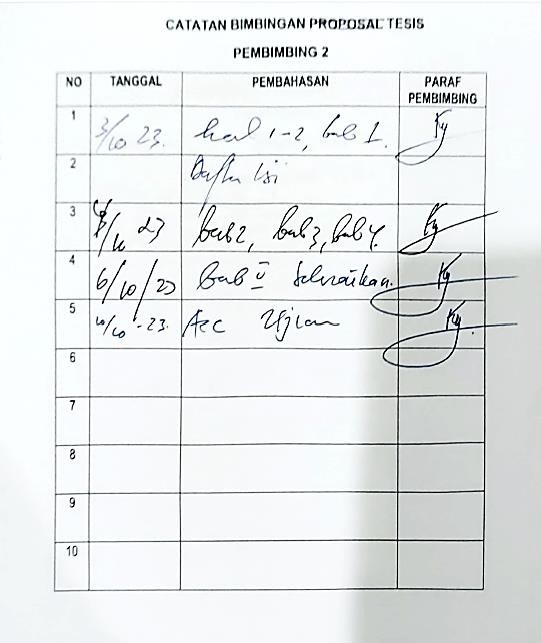 CATATAN BIMBINGAN PROPOSAL TESIS
PEMBIMBING 2
NO TANGGAL PEMBAHASAN PARAF PEMBIMBING
1 3/10 23. hal 1-2, bab 1.
2 Daftar Isi
3 /10 23 bab 2, bab 3, bab 4.
4 6/10/23 bab
5 10/10-23. Acc Ujian
6
7
8
9
10